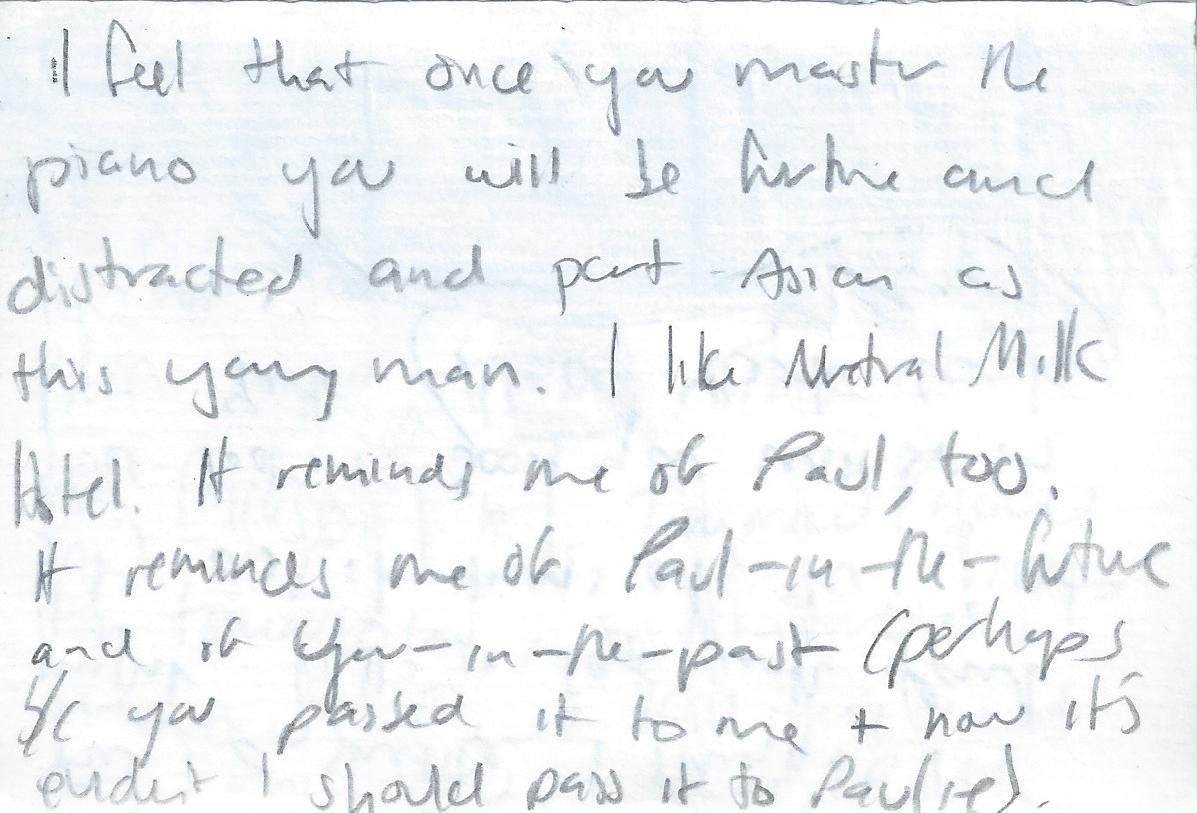 I feel that once you master the
piano you will be furtive and
distracted and part Asian as
this young man. I like Neutral Milk
Hotel. It reminds me of Paul, too.
It reminds me of Paul-in-the-future
and of You-in-the-past (perhaps
b/c you passed it to me + now it's
evident I should pass it to Paul(ie).